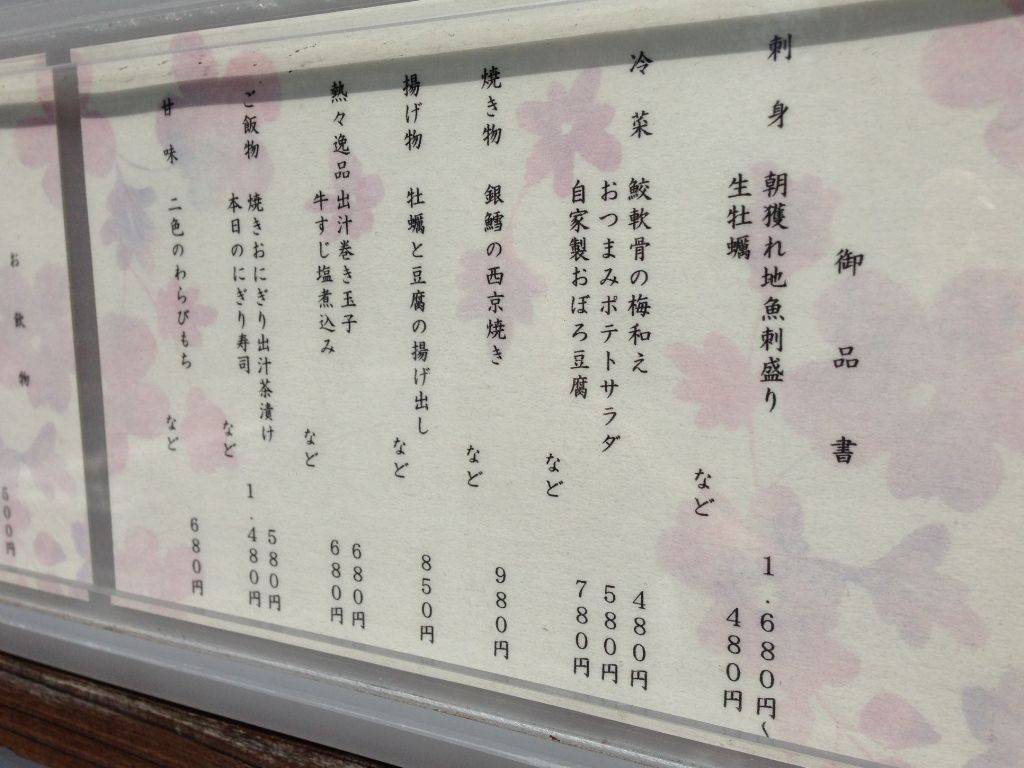 御品書
刺身 朝獲れ地魚刺盛り 1.680円〜
生牡蠣 480円
など
冷菜 鮫軟骨の梅和え 480円
おつまみポテトサラダ 580円
自家製おぼろ豆腐 780円
など
焼き物 銀鱈の西京焼き 980円
など
揚げ物 牡蠣と豆腐の揚げ出し 850円
など
熱々逸品 出汁巻き玉子 680円
牛すじ塩煮込み 680円
など
ご飯物 焼きおにぎり出汁茶漬け 580円
本日のにぎり寿司 1.480円
など
甘味 二色のわらびもち 680円
など
お飲物 500円